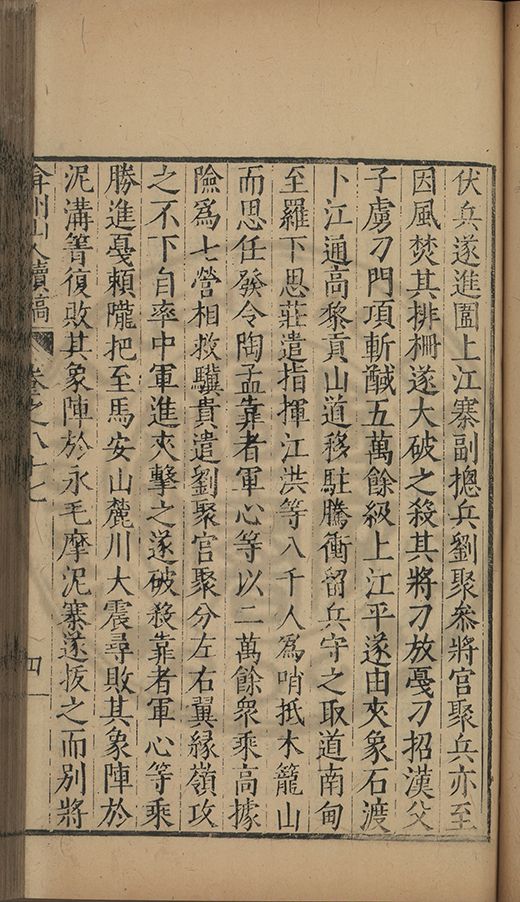 伏兵遂進圍上江寨副摠兵劉聚叅將官聚兵亦至
因風焚其排柵遂大破之殺其將刀放戞刀招漢父
子虜刀門項斬馘五萬餘級上江平遂由夾象石渡
卜江通高黎貢山道移駐騰衝留兵守之取道南甸
至羅卜思莊遣指揮江洪等八千人爲哨抵木籠山
而思任發令陶孟靠者軍心等以二萬餘衆乘高據
險爲七營相救驥貴遣劉聚官聚分左右翼緣嶺攻
之不下自率中軍進夾擊之遂破殺靠者軍心等乘
勝進戞賴隴把至馬安山麓川大震尋敗其象陣於
泥溝箐復敗其象陣於永毛摩泥寨遂拔之而別將
弇州山人續稿 卷之八十七 四